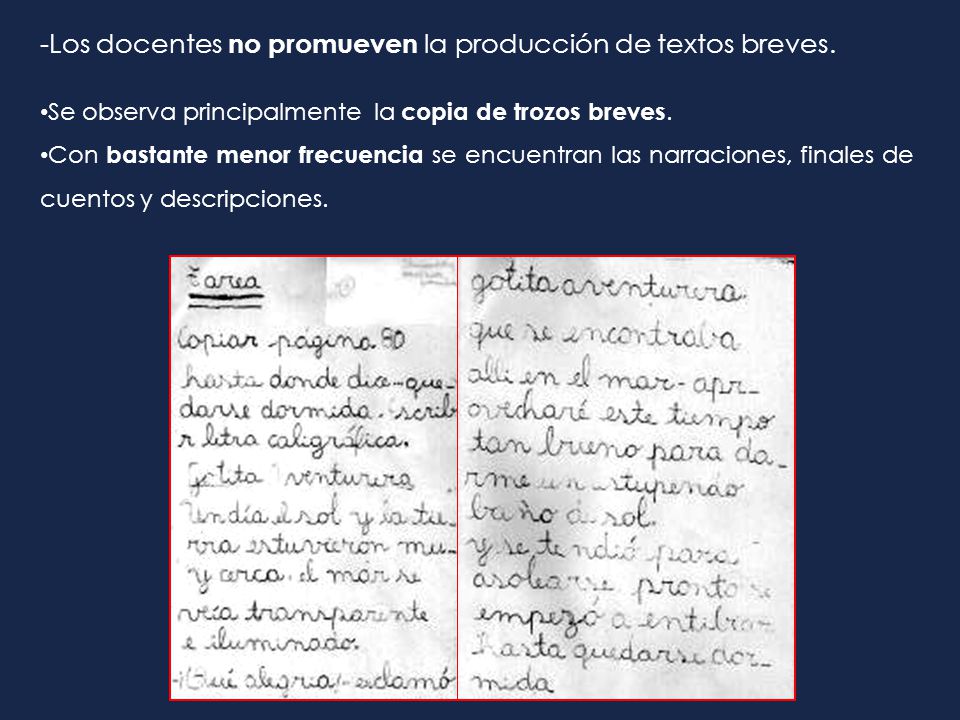 -Los docentes no promueven la producción de textos breves.
•Se observa principalmente la copia de trozos breves.
•Con bastante menor frecuencia se encuentran las narraciones, finales de
cuentos y descripciones.
tarea
Copiar página 80
hasta donde dice-que-
darse dormida.
r letra caligráfica.
Gotita
Un día el sol y la tie-
rra estuvieron mu-
y cerca. el mar se
veía transparente
e iluminado.
-¡Qué alegría!-exclamó
gotita aventurera.
que se encontraba
alli en el mar-apr-
ovecharé este tiempo
tan brueno para da-
rme un stupendo
baño de sol.
y se tendió para
asolearse pronto se
empezó a entibia-
hasta quedarse dor-
mida